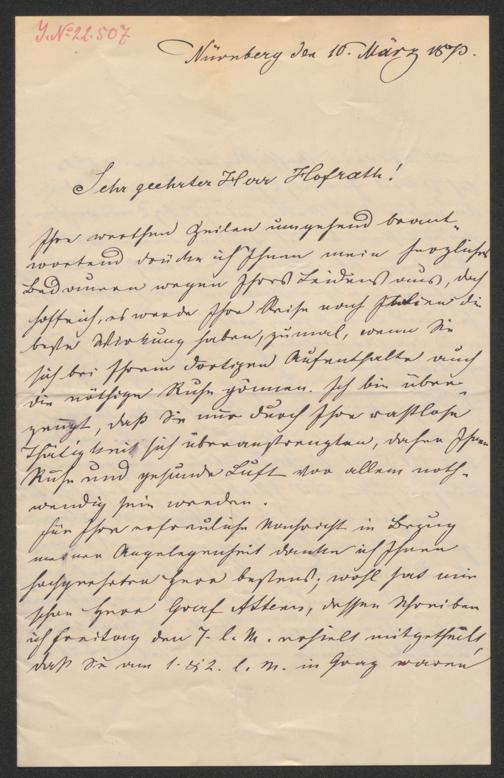 J. No 22.507
Nürnberg den 10. März 1873.
Sehr geehrter Herr Hofrath!
Ihre werthen Zeilen umgehend beant-
wortend drücke ich Ihnen mein herzliches
Bedauern wegen Ihres Leidens aus, doch
hoffe ich, es werde Ihre Reise nach Italien die
beste Wirkung haben, zumal, wenn Sie
sich bei Ihrem dortigen Aufenthalte auch
die nöthige Ruhe gönnen. Ich bin über-
zeugt, daß Sie nur durch Ihre rastlose
Thätigkeit sich überanstrengten, daher Ihnen
Ruhe und gesunde Luft vor allem noth-
wendig sein werden.
Für Ihre erfreuliche Nachricht in Bezug
meiner Angelegenheit danke ich Ihnen
hochgeehrter Herr bestens; wohl hat mir
schon Herr Graf Attems, dessen Schreiben
ich Freitag den 7. l. M. erhielt mitgetheilt,
daß Sie am 1. & 2. l. M. in Graz waren